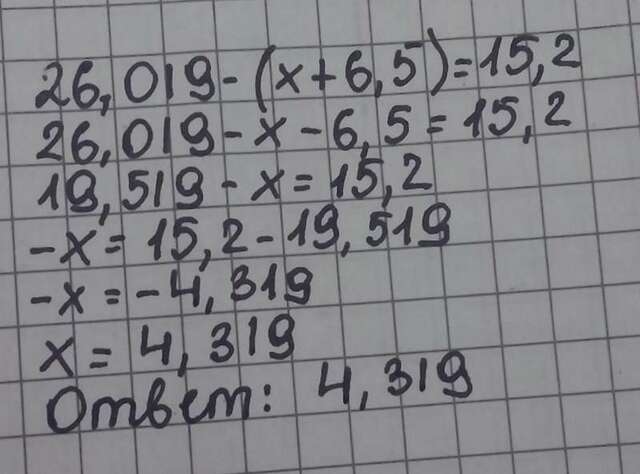 26,019-(x+6,5)=15,2
26,019-x-6,5=15,2
19,519-x=15,2
-x=15,2-19,519
-x=-4,319
x=4,319
Ответ: 4,319